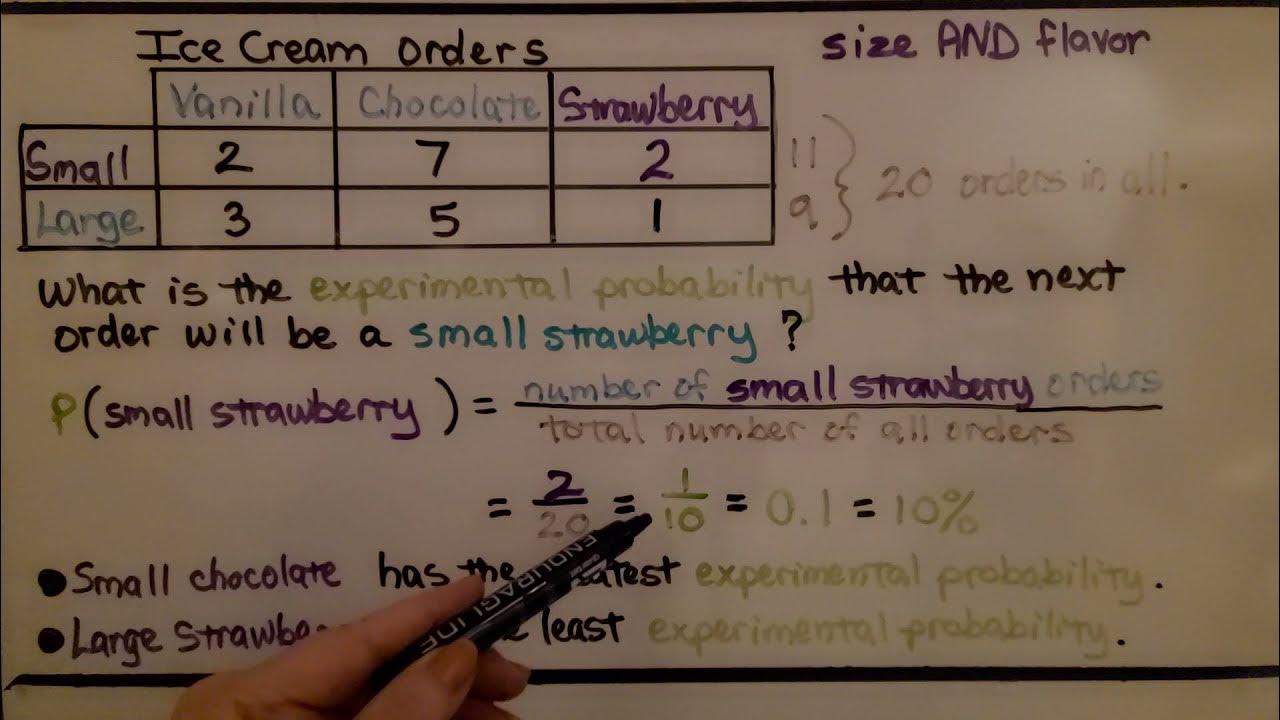 Ice Cream orders
size AND flavor
Vanilla Chocolate Strawberry
Small 2 7 2 11
Large 3 5 1 9
} 20 orders in all.
What is the experimental probability that the next
order will be a small strawberry ?
P(small strawberry) = number of small strawberry orders
total number of all orders
= 2/20 = 1/10 = 0.1 = 10%
ENDURAGLIDE
• Small chocolate has the experimental probability.
• Large least experimental probability.